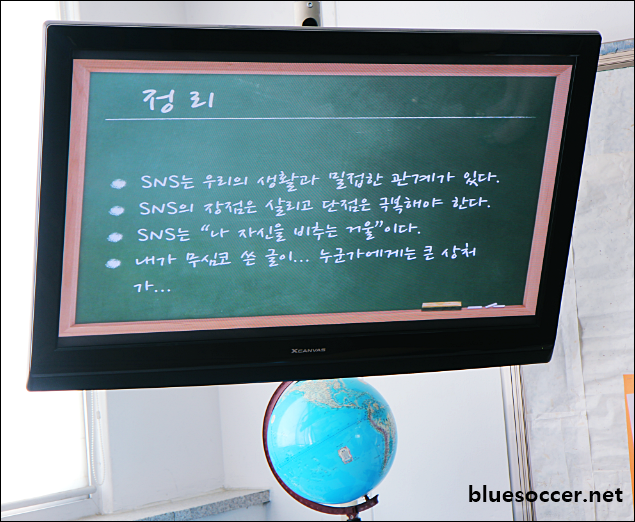 정리
SNS는 우리의 생활과 밀접한 관계가 있다.
SNS의 장점은 살리고 단점은 극복해야 한다.
SNS는 “나 자신을 비추는 거울”이다.
내가 무심코 쓴 글이... 누군가에게는 큰 상처
가...
XCANVAS
bluesoccer.net